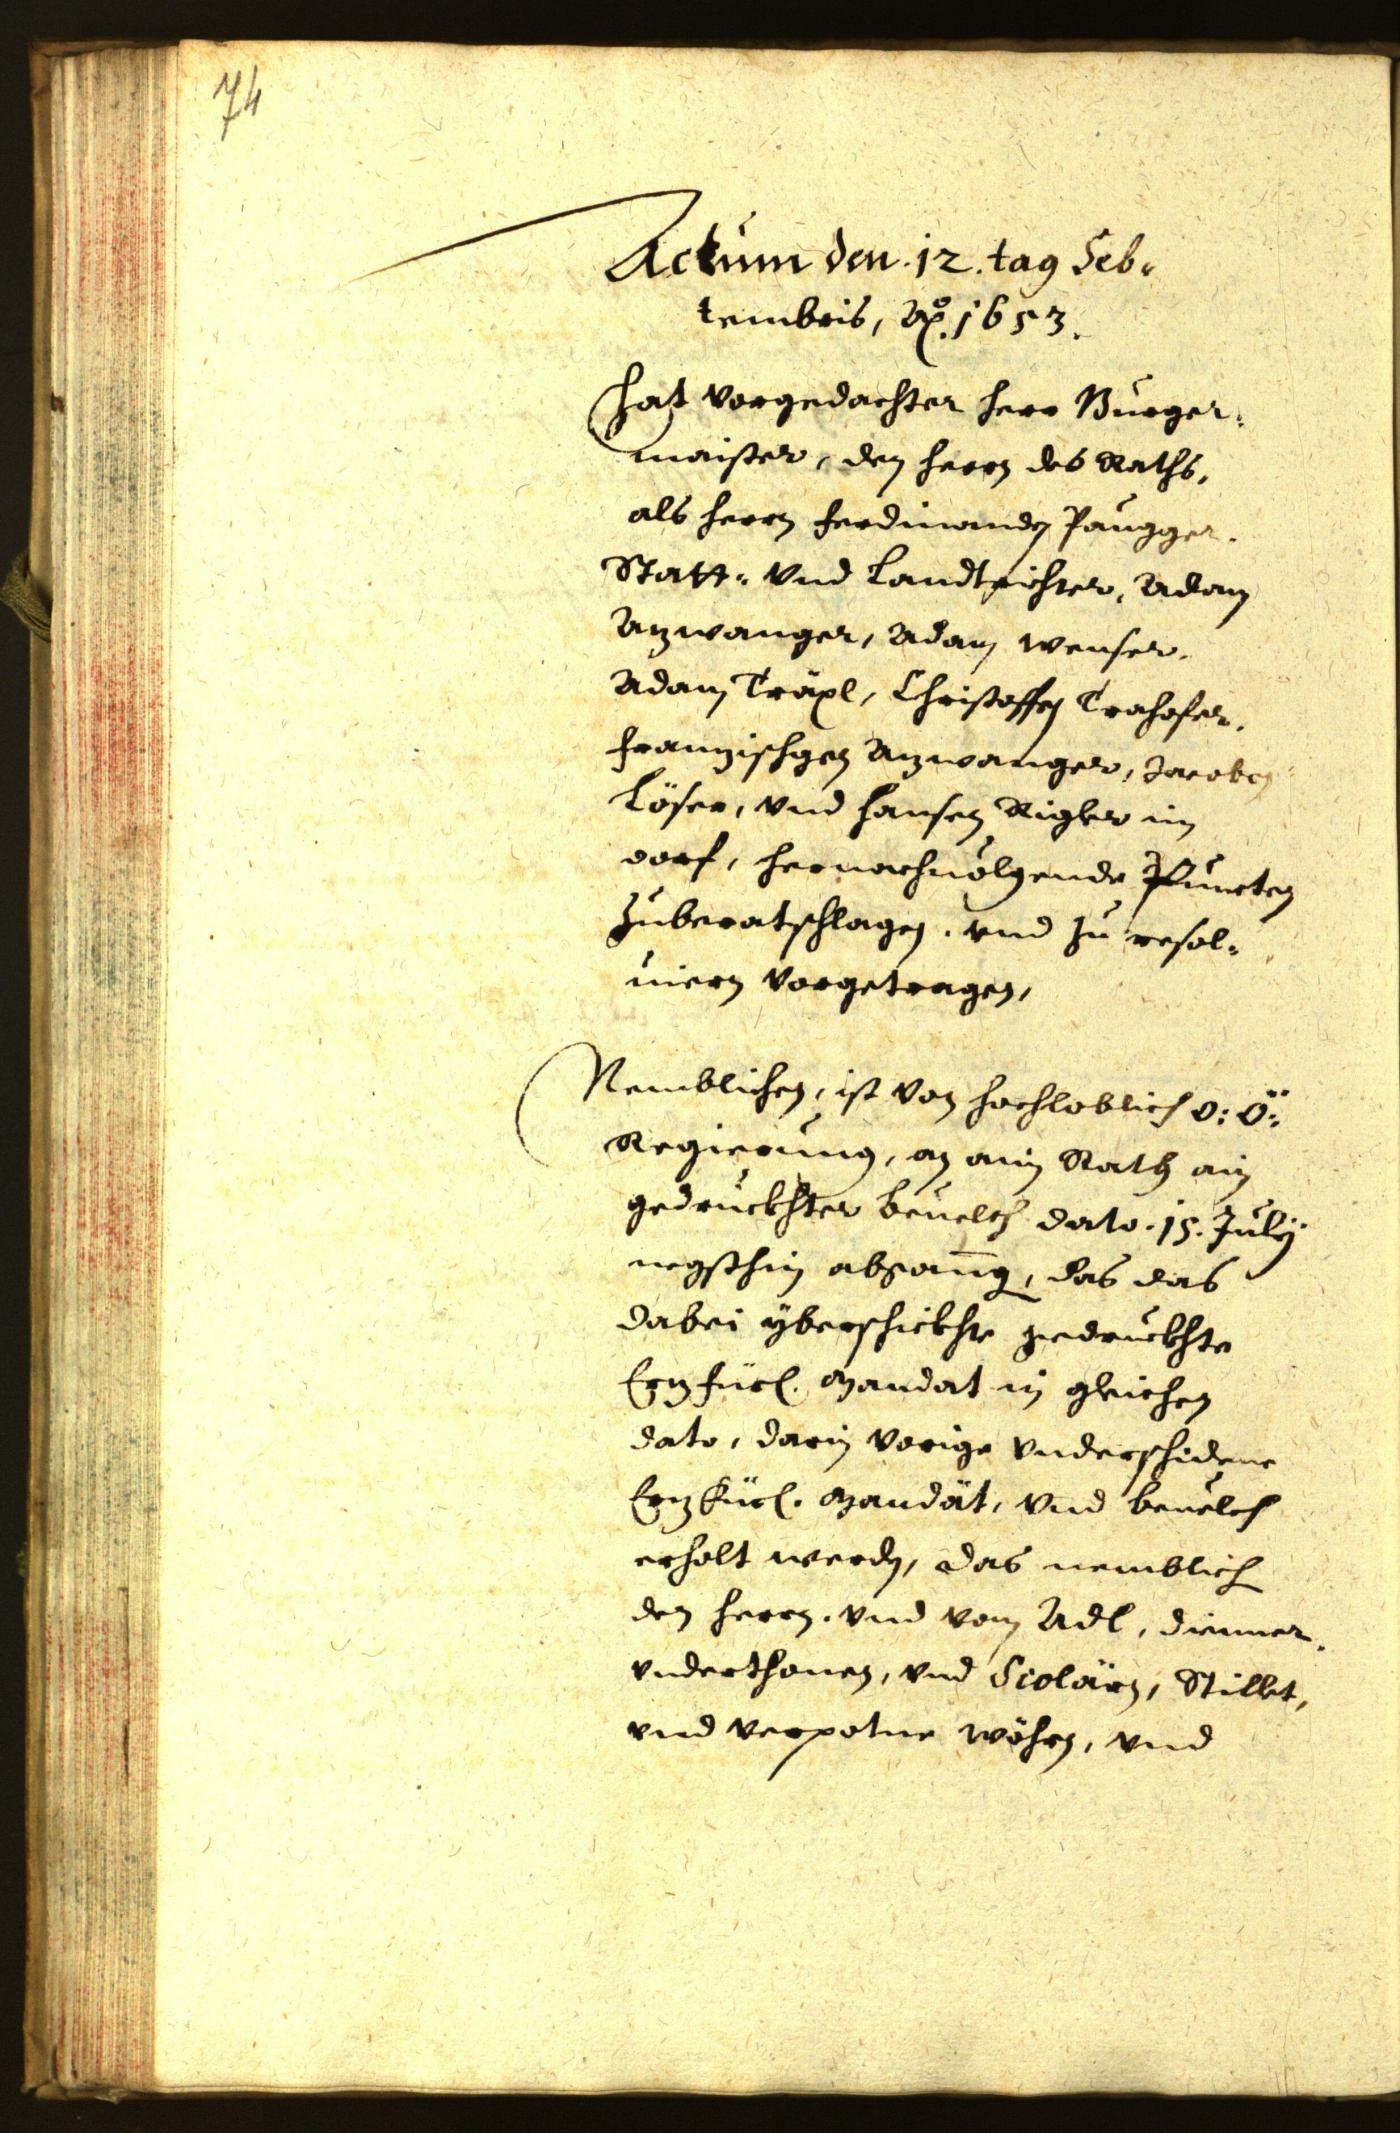 74
Actum den .12. tag Seb„
tembris, Aō. 1653.
hat vorgedachter herr Burger„
maister, den herrn des Raths,
als herrn Ferdinanden Paugger.
Statt„ vnd Landtrichter, Adam
Anzwanger, Adam Wenser,
Adam Träxl, Christoffen Trahofer,
Franzischgen Anzwanger, Jacoben
Löser, vnd Hansen Rigler im
dorf, hernachuolgende Puncten
zuberatschlagen, vnd zu resol„
uiern vorgetragen,
Nemblichen, ist von hochloblich O: Ö:
Regierung, an ain Rath ain
gedruckhter beuelch dato .15. July
negsthin abgang, das das
dabei yberschickhte gedruckhte
Erzfürl. Mandat in gleichen
dato, darin vorige vnderschidene
Erzfürl. Mandat, vnd beuelch
erholt werdn, das nemblich
den herrn, vnd vom Adl, dienner,
vnderthonen, vnd Scolärn, Stillet,
vnd verpotne wöhrn, vnd